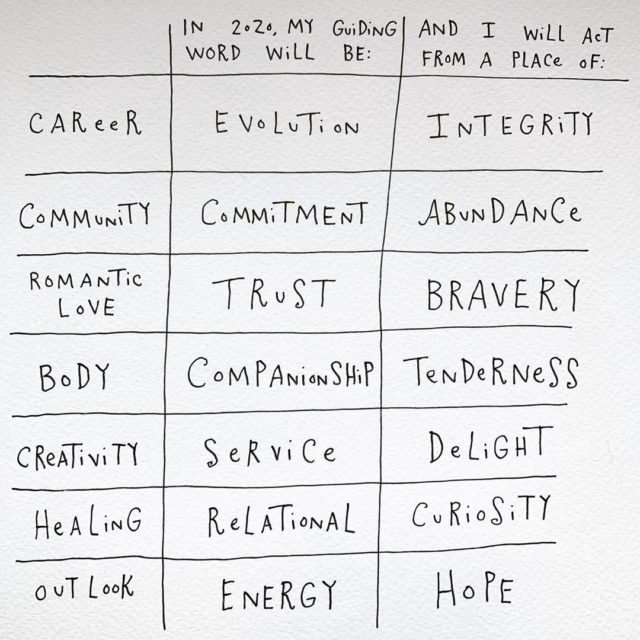 IN 2020, MY GUiDiNG
WORD WiLL BE:
AND I WiLL ACT
FROM A PLACE OF:
CAReeR
EVOLUTiON
INTEGRiTY
COMMUNiTY
COMMiTMENT
ABUNDANCe
ROMANTiC
LOVE
TRUST
BRAVERY
BODY
COMPANiONSHiP
TeNDeRNeSS
CReATiViTY
SeRViCe
DeLiGHT
HeALiNG
ReLATiONAL
CURiOSiTY
OUTLOOK
ENERGY
HOPE